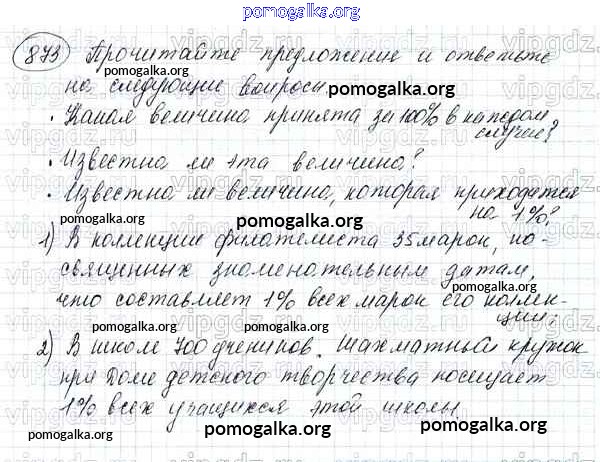 pomogalka.org
873 Прочитайте предложение и ответьте
pomogalka.org
на следующие вопросы
pomogalka.org
• Какая величина принята за 100% в каждом
случае?
pomogalka.org
• Известна ли эта величина?
pomogalka.org
• Известна ли величина, которая приходится
на 1%?
pomogalka.org
1) В коллекции филателиста 35 марок, по-
pomogalka.org
священных знаменательным датам,
что составляет 1% всех марок его коллек-
ции;
pomogalka.org pomogalka.org
2) В школе 700 учеников. Шахматный кружок
pomogalka.org
при Доме детского творчества посещает
1% всех учащихся этой школы.
pomogalka.org pomogalka.org pomogalka.org